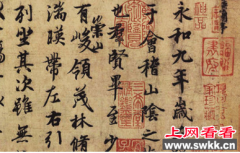 永和九年歲
于會稽山陰之
也群賢畢至少
崇山
有峻領茂林脩
湍暎帶左右引
列坐其次雖無
上网看看
www.swkk.cn